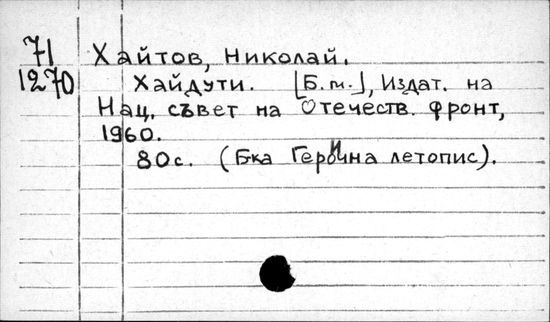 71 Хайтов, Николай.
1270 Хайдути. [Б.м.], Издат. на
Нац. съвет на Отечеств. фронт,
1960.
80с. (Б-ка Геройчна летопис).